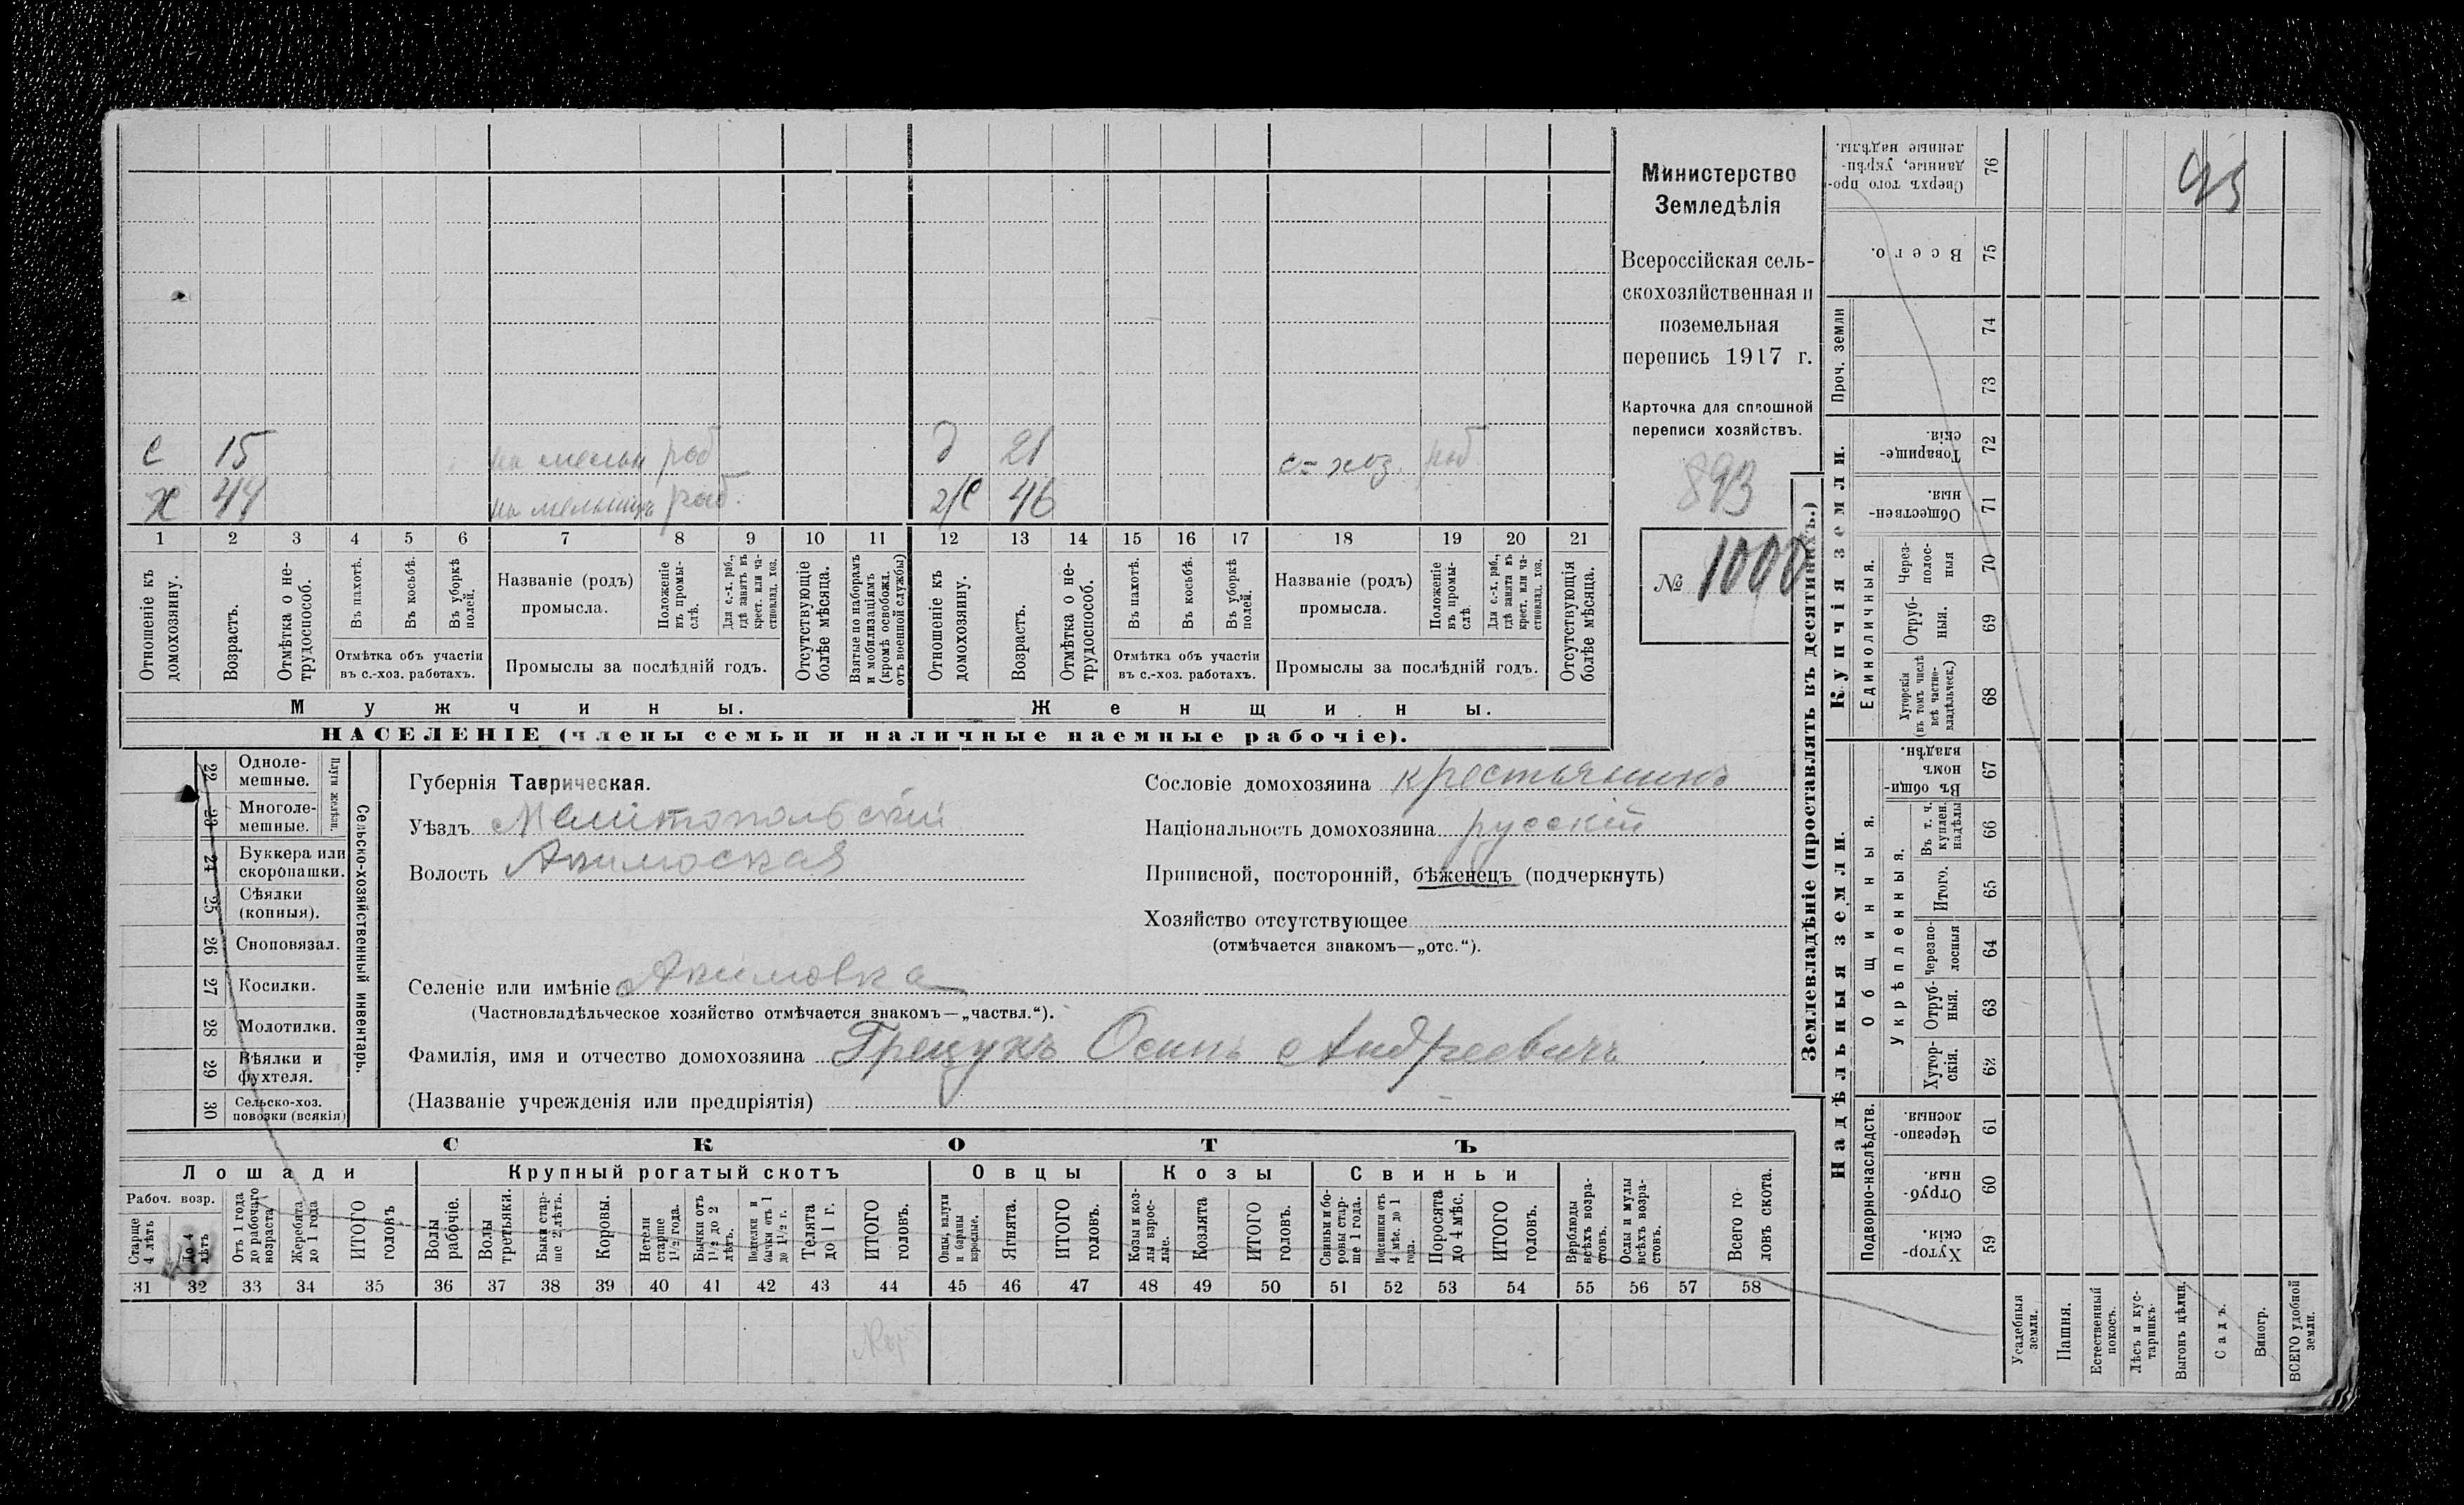 Министерство
Земледѣлія
Всероссійская сель-
скохозяйственная и
поземельная
перепись 1917 г.
Карточка для сплошной
переписи хозяйствъ.
893
№ 1000
с 15 на мельн раб д 21 с-хоз. раб
х 44 на мельницѣ раб. ж 46
1 2 3 4 5 6 7 8 9 10 11 12 13 14 15 16 17 18 19 20 21
Отношеніе къ домохозяину.
Возрастъ.
Отмѣтка о не-трудоспособ.
Въ пахотѣ.
Въ косьбѣ.
Въ уборкѣ полей.
Отмѣтка объ участіи въ с.-хоз. работахъ.
Названіе (родъ) промысла.
Положеніе въ промы-слѣ.
Для с.-х. раб., гдѣ занятъ въ крест. или ча-стновлад. хоз.
Промыслы за послѣдній годъ.
Отсутствующіе болѣе мѣсяца.
Взятые по наборамъ и мобилизаціямъ (кромѣ освобожд. отъ военной службы)
Отношеніе къ домохозяину.
Возрастъ.
Отмѣтка о не-трудоспособ.
Въ пахотѣ.
Въ косьбѣ.
Въ уборкѣ полей.
Отмѣтка объ участіи въ с.-хоз. работахъ.
Названіе (родъ) промысла.
Положеніе въ промы-слѣ.
Для с.-х. раб., гдѣ занята въ крест. или ча-стновлад. хоз.
Промыслы за послѣдній годъ.
Отсутствующія болѣе мѣсяца.
Мужчины. Женщины.
НАСЕЛЕНІЕ (члены семьи и наличные наемные рабочіе).
22 Одноле-мешные.
23 Многоле-мешные.
Плуги желѣзн.
24 Буккера или скоропашки.
25 Сѣялки (конныя).
26 Сноповязал.
27 Косилки.
28 Молотилки.
29 Вѣялки и фухтеля.
30 Сельско-хоз. повозки (всякія)
Сельско-хозяйственный инвентарь.
Губернія Таврическая.
Уѣздъ Мелитопольскій
Волость Акимовская
Селеніе или имѣніе Акимовка
(Частновладѣльческое хозяйство отмѣчается знакомъ—„частвл.“).
Фамилія, имя и отчество домохозяина Грецукъ Осипъ Андреевичъ
(Названіе учрежденія или предпріятія)
Сословіе домохозяина крестьянинъ
Національность домохозяина русскій
Приписной, посторонній, бѣженецъ (подчеркнуть)
Хозяйство отсутствующее
(отмѣчается знакомъ—„отс.“).
СКОТЪ
Лошади Крупный рогатый скотъ Овцы Козы Свиньи
Рабоч. возр.
Старше 4 лѣтъ
До 4 лѣтъ
Отъ 1 года до рабочаго возраста
Жеребята до 1 года
ИТОГО головъ
Волы рабочіе.
Волы третьяки.
Быки стар-ше 2 лѣтъ.
Коровы.
Нетели старше 1½ года.
Бычки отъ 1½ до 2 лѣтъ.
Подтелки и бычки отъ 1 до 1½ г.
Телята до 1 г.
ИТОГО головъ.
Овцы, валухи и бараны взрослые.
Ягнята.
ИТОГО головъ.
Козы и коз-лы взрос-лые.
Козлята
ИТОГО головъ.
Свиньи и бо-ровы стар-ше 1 года.
Подсвинки отъ 4 мѣс. до 1 года.
Поросята до 4 мѣс.
ИТОГО головъ.
Верблюды всѣхъ возра-стовъ.
Ослы и мулы всѣхъ возра-стовъ.
Всего го-ловъ скота.
31 32 33 34 35 36 37 38 39 40 41 42 43 44 45 46 47 48 49 50 51 52 53 54 55 56 57 58
Землевладѣніе (проставлять въ десятинахъ.)
Купчія земли.
Надѣльныя земли.
Сверхъ того про-данные, укрѣп-ленные надѣлы. 76
Всего. 75
Проч. земли 74
73
Товарище-скія. 72
Обществен-ныя. 71
Единоличныя.
Через-полос-ныя 70
Отруб-ныя. 69
Хуторскія (въ томъ числѣ всѣ частно-владѣльческ.) 68
Общинныя.
Въ общи-номъ владѣн. 67
Укрѣпленныя.
Въ т. ч. куплен. надѣлы 66
Итого. 65
Черезпо-лосныя 64
Отруб-ныя. 63
Хутор-скія. 62
Подворно-наслѣдств.
Черезпо-лосныя. 61
Отруб-ныя. 60
Хутор-скія. 59
Усадебныя земли.
Пашня.
Естественный покосъ.
Лѣсъ и кус-тарникъ.
Выгонъ цѣлин.
Садъ.
Виногр.
ВСЕГО удобной земли.